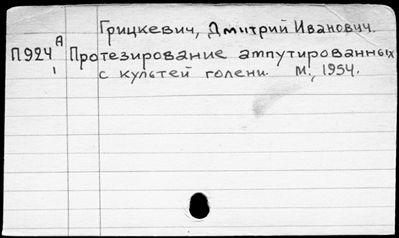 Грицкевич, Дмитрий Иванович.
П924 А Протезирование ампутированных
1 с культей голени. М., 1954.